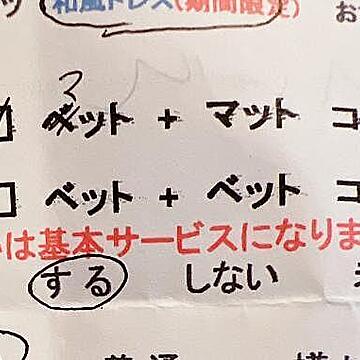 和風ドレス(期間限定) お
マット + マット コ
ベット + ベット コ
は基本サービスになりま
する しない
普通